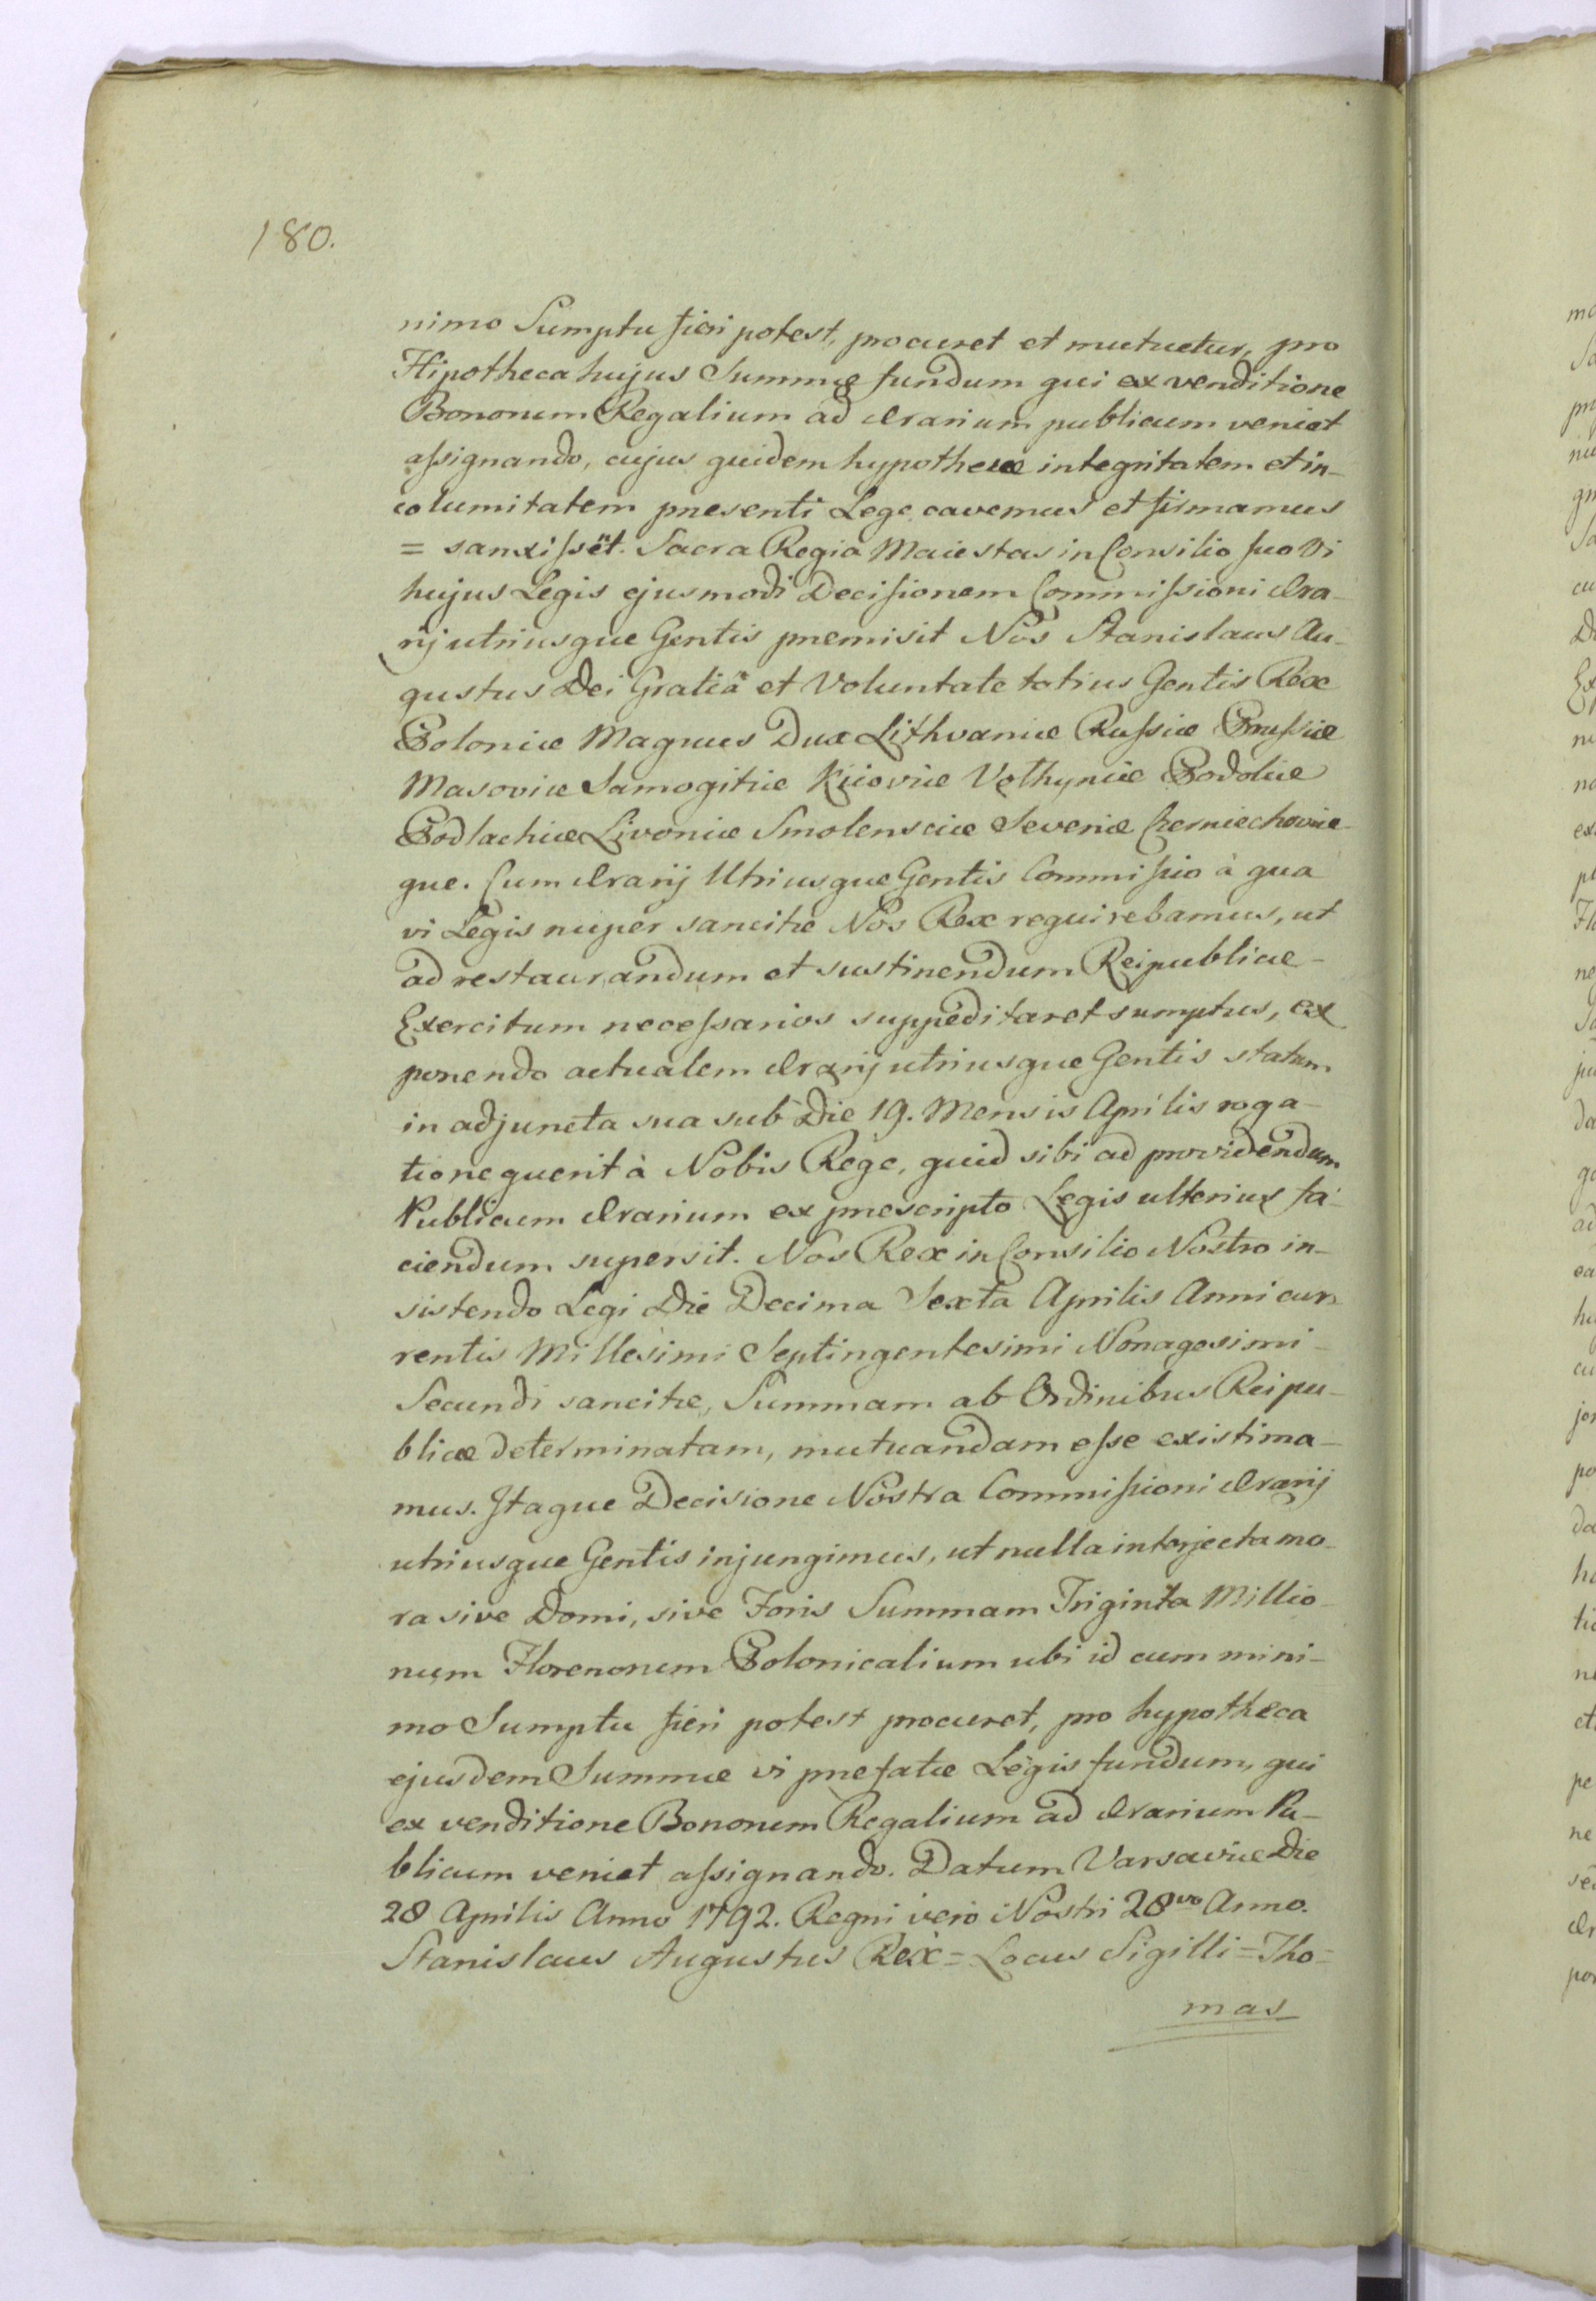 180.
nimo Sumptu fieri potest, procuret et mutuetur, pro
Hipotheca hujus Summæ fundum qui ex venditione
Bonorum Regalium ad Ærarium publicum veniet
aſsignando, cujus quidem hypothecæ integritatem et in-
columitatem præsenti Lege cavemus et firmamus
= sanxiſsët. Sacra Regia Maiestas in Consilio suo vi
hujus Legis ejusmodi Decisionem Commiſsioni Æra-
rij utriusque Gentis præmisit Nos Stanislaus Au-
gustus Dei Gratiâ et Voluntate totius Gentis Rex
Poloniæ Magnus Dux Lithvaniæ Ruſsiæ Pruſsiæ
Masoviæ Samogitiæ Kijoviæ Volhyniæ Podoliæ
Podlachiæ Livoniæ Smolensciæ Severiæ Czerniechoviæ-
que. Cum Ærarij Utriusque Gentis Commiſsio à qua
vi Legis nuper sancitæ Nos Rex requirebamus, ut
ad restaurandum et sustinendum Reipublicæ-
Exercitum neceſsarios suppeditaret sumptus, ex
ponendo actualem Ærarij utriusque Gentis statum
in adjuncta sua sub Die 19. Mensis Aprilis roga-
tione querit à Nobis Rege, quid sibi ad providendum
Publicum Ærarium ex præscripto Legis ulterius fa-
ciendum supersit. Nos Rex in Consilio Nostro in-
sistendo Legi Die Decima Sexta Aprilis Anni cur-
rentis Millesimi Septingentesimi Nonagesimi-
Secundi sancitæ, Summam ab Ordinibus Reipu-
blicæ determinatam, mutuandam eſse existima-
mus. Itaque Decisione Nostra Commiſsioni Ærarij
utriusque Gentis injungimus, ut nulla interjecta mo-
ra sive Domi, sive Foris Summam Triginta Millio-
num Florenorum Polonicalium ubi id cum mini-
mo Sumptu fieri potest procuret, pro hypotheca
ejusdem Summæ vi præfatæ Legis fundum, qui
ex venditione Bonorum Regalium ad Ærarium Pu-
blicum veniet aſsignando. Datum Varsaviæ Die
28 Aprilis Anno 1792. Regni vero Nostri 28vo Anno.
Stanislaus Augustus Rex = Locus Sigilli = Tho-
mas